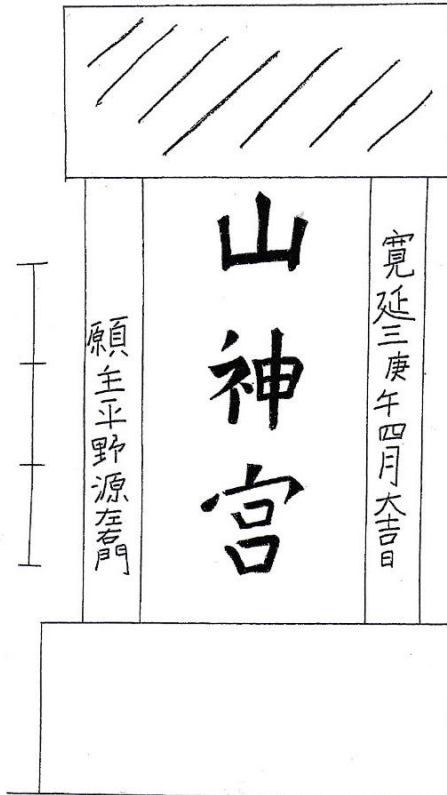 寛延三庚午四月大吉日
山神宮
願主平野源左右門